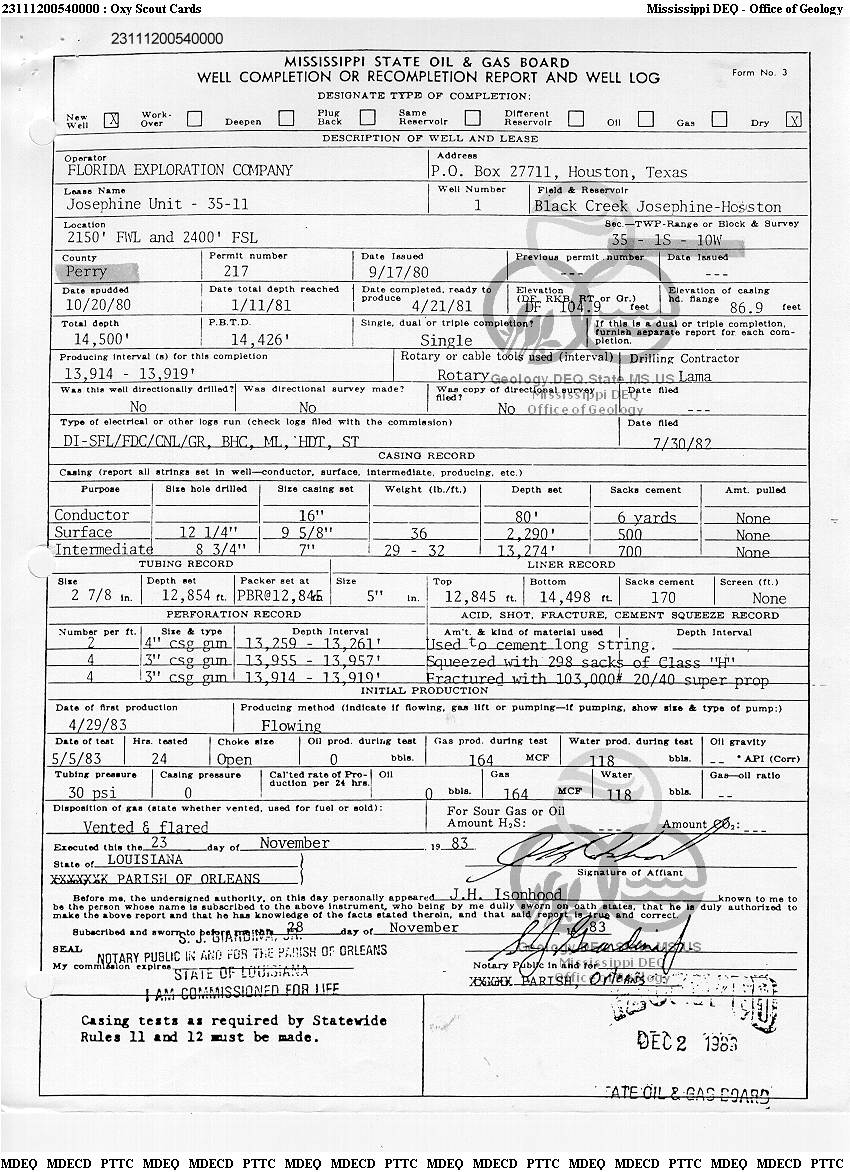 23111200540000 : Oxy Scout Cards Mississippi DEQ - Office of Geology
23111200540000
MISSISSIPPI STATE OIL & GAS BOARD
WELL COMPLETION OR RECOMPLETION REPORT AND WELL LOG Form No. 3
DESIGNATE TYPE OF COMPLETION:
New Well X Work-Over Deepen Plug Back Same Reservoir Different Reservoir Oil Gas Dry X
DESCRIPTION OF WELL AND LEASE
Operator Address
FLORIDA EXPLORATION COMPANY P.O. Box 27711, Houston, Texas
Lease Name Well Number Field & Reservoir
Josephine Unit - 35-11 1 Black Creek Josephine-Hosston
Location Sec.—TWP-Range or Block & Survey
2150' FWL and 2400' FSL 35 - 1S - 10W
County Permit number Date Issued Previous permit number Date Issued
Perry 217 9/17/80 --- ---
Date spudded Date total depth reached Date completed, ready to produce Elevation (DF, RKB, RT or Gr.) Elevation of casing hd. flange
10/20/80 1/11/81 4/21/81 DF 104.9 feet 86.9 feet
Total depth P.B.T.D. Single, dual or triple completion? If this is a dual or triple completion, furnish separate report for each completion.
14,500' 14,426' Single
Producing interval (s) for this completion Rotary or cable tools used (interval) Drilling Contractor
13,914 - 13,919' Rotary Lama
Geology.DEQ.State.MS.US
Was this well directionally drilled? Was directional survey made? Was copy of directional survey filed? Date filed
Mississippi DEQ
No No No ---
Office of Geology
Type of electrical or other logs run (check logs filed with the commission) Date filed
DI-SFL/FDC/CNL/GR, BHC, ML, HDT, ST 7/30/82
CASING RECORD
Casing (report all strings set in well—conductor, surface, intermediate, producing, etc.)
Purpose Size hole drilled Size casing set Weight (lb./ft.) Depth set Sacks cement Amt. pulled
Conductor 16" 80' 6 yards None
Surface 12 1/4" 9 5/8" 36 2,290' 500 None
Intermediate 8 3/4" 7" 29 - 32 13,274' 700 None
TUBING RECORD LINER RECORD
Size Depth set Packer set at Size Top Bottom Sacks cement Screen (ft.)
2 7/8 in. 12,854 ft. PBR@12,845 5" in. 12,845 ft. 14,498 ft. 170 None
PERFORATION RECORD ACID, SHOT, FRACTURE, CEMENT SQUEEZE RECORD
Number per ft. Size & type Depth Interval Am't. & kind of material used Depth Interval
2 4" csg gun 13,259 - 13,261' Used to cement long string.
4 3" csg gun 13,955 - 13,957' Squeezed with 298 sacks of Class "H"
4 3" csg gun 13,914 - 13,919' Fractured with 103,000# 20/40 super prop
INITIAL PRODUCTION
Date of first production Producing method (indicate if flowing, gas lift or pumping—if pumping, show size & type of pump:)
4/29/83 Flowing
Date of test Hrs. tested Choke size Oil prod. during test Gas prod. during test Water prod. during test Oil gravity
5/5/83 24 Open 0 bbls. 164 MCF 118 bbls. -- ° API (Corr)
Tubing pressure Casing pressure Cal'ted rate of Production per 24 hrs. Oil Gas Water Gas—oil ratio
30 psi 0 0 bbls. 164 MCF 118 bbls. --
Disposition of gas (state whether vented, used for fuel or sold): For Sour Gas or Oil
Vented & flared Amount H2S: --- Amount CO2: ---
Executed this the 23 day of November , 19 83.
State of LOUISIANA
Signature of Affiant
XXXXXXX PARISH OF ORLEANS
Before me, the undersigned authority, on this day personally appeared J.H. Isonhood known to me to
be the person whose name is subscribed to the above instrument, who being by me dully sworn on oath states, that he is duly authorized to
make the above report and that he has knowledge of the facts stated therein, and that said report is true and correct.
Subscribed and sworn to before me this 28 day of November 83
S. J. GIARDINA, JR.
SEAL NOTARY PUBLIC IN AND FOR THE PARISH OF ORLEANS
Geology.DEQ.State.MS.US
Mississippi DEQ
My commission expires STATE OF LOUISIANA Notary Public in and for
Office of Geology
XXXXX PARISH, Orleans
I AM COMMISSIONED FOR LIFE
Casing tests as required by Statewide
Rules 11 and 12 must be made.
DEC 2 1983
STATE OIL & GAS BOARD
MDEQ MDECD PTTC MDEQ MDECD PTTC MDEQ MDECD PTTC MDEQ MDECD PTTC MDEQ MDECD PTTC MDEQ MDECD PTTC MDEQ